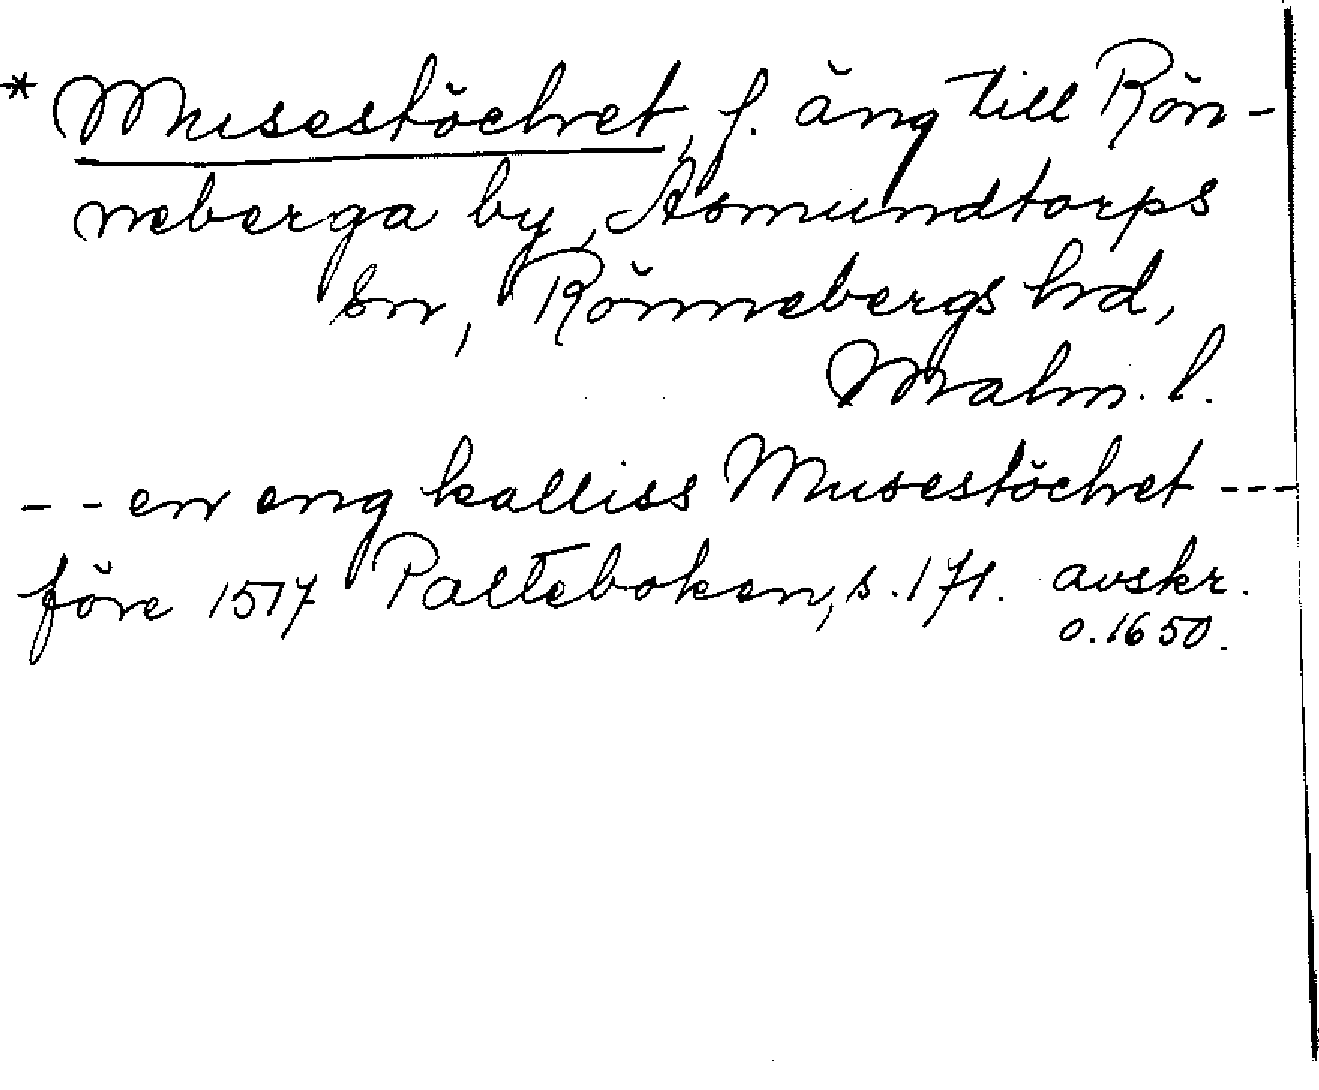 * Musestöchret, f. äng till Rön-
neberga by, Asmundtorps
sn, Rönnebergs hd,
Malm. l.
-- en eng kalliss Musestöchret ---
före 1517 Palteboken, s. 171. avskr.
o. 1650.